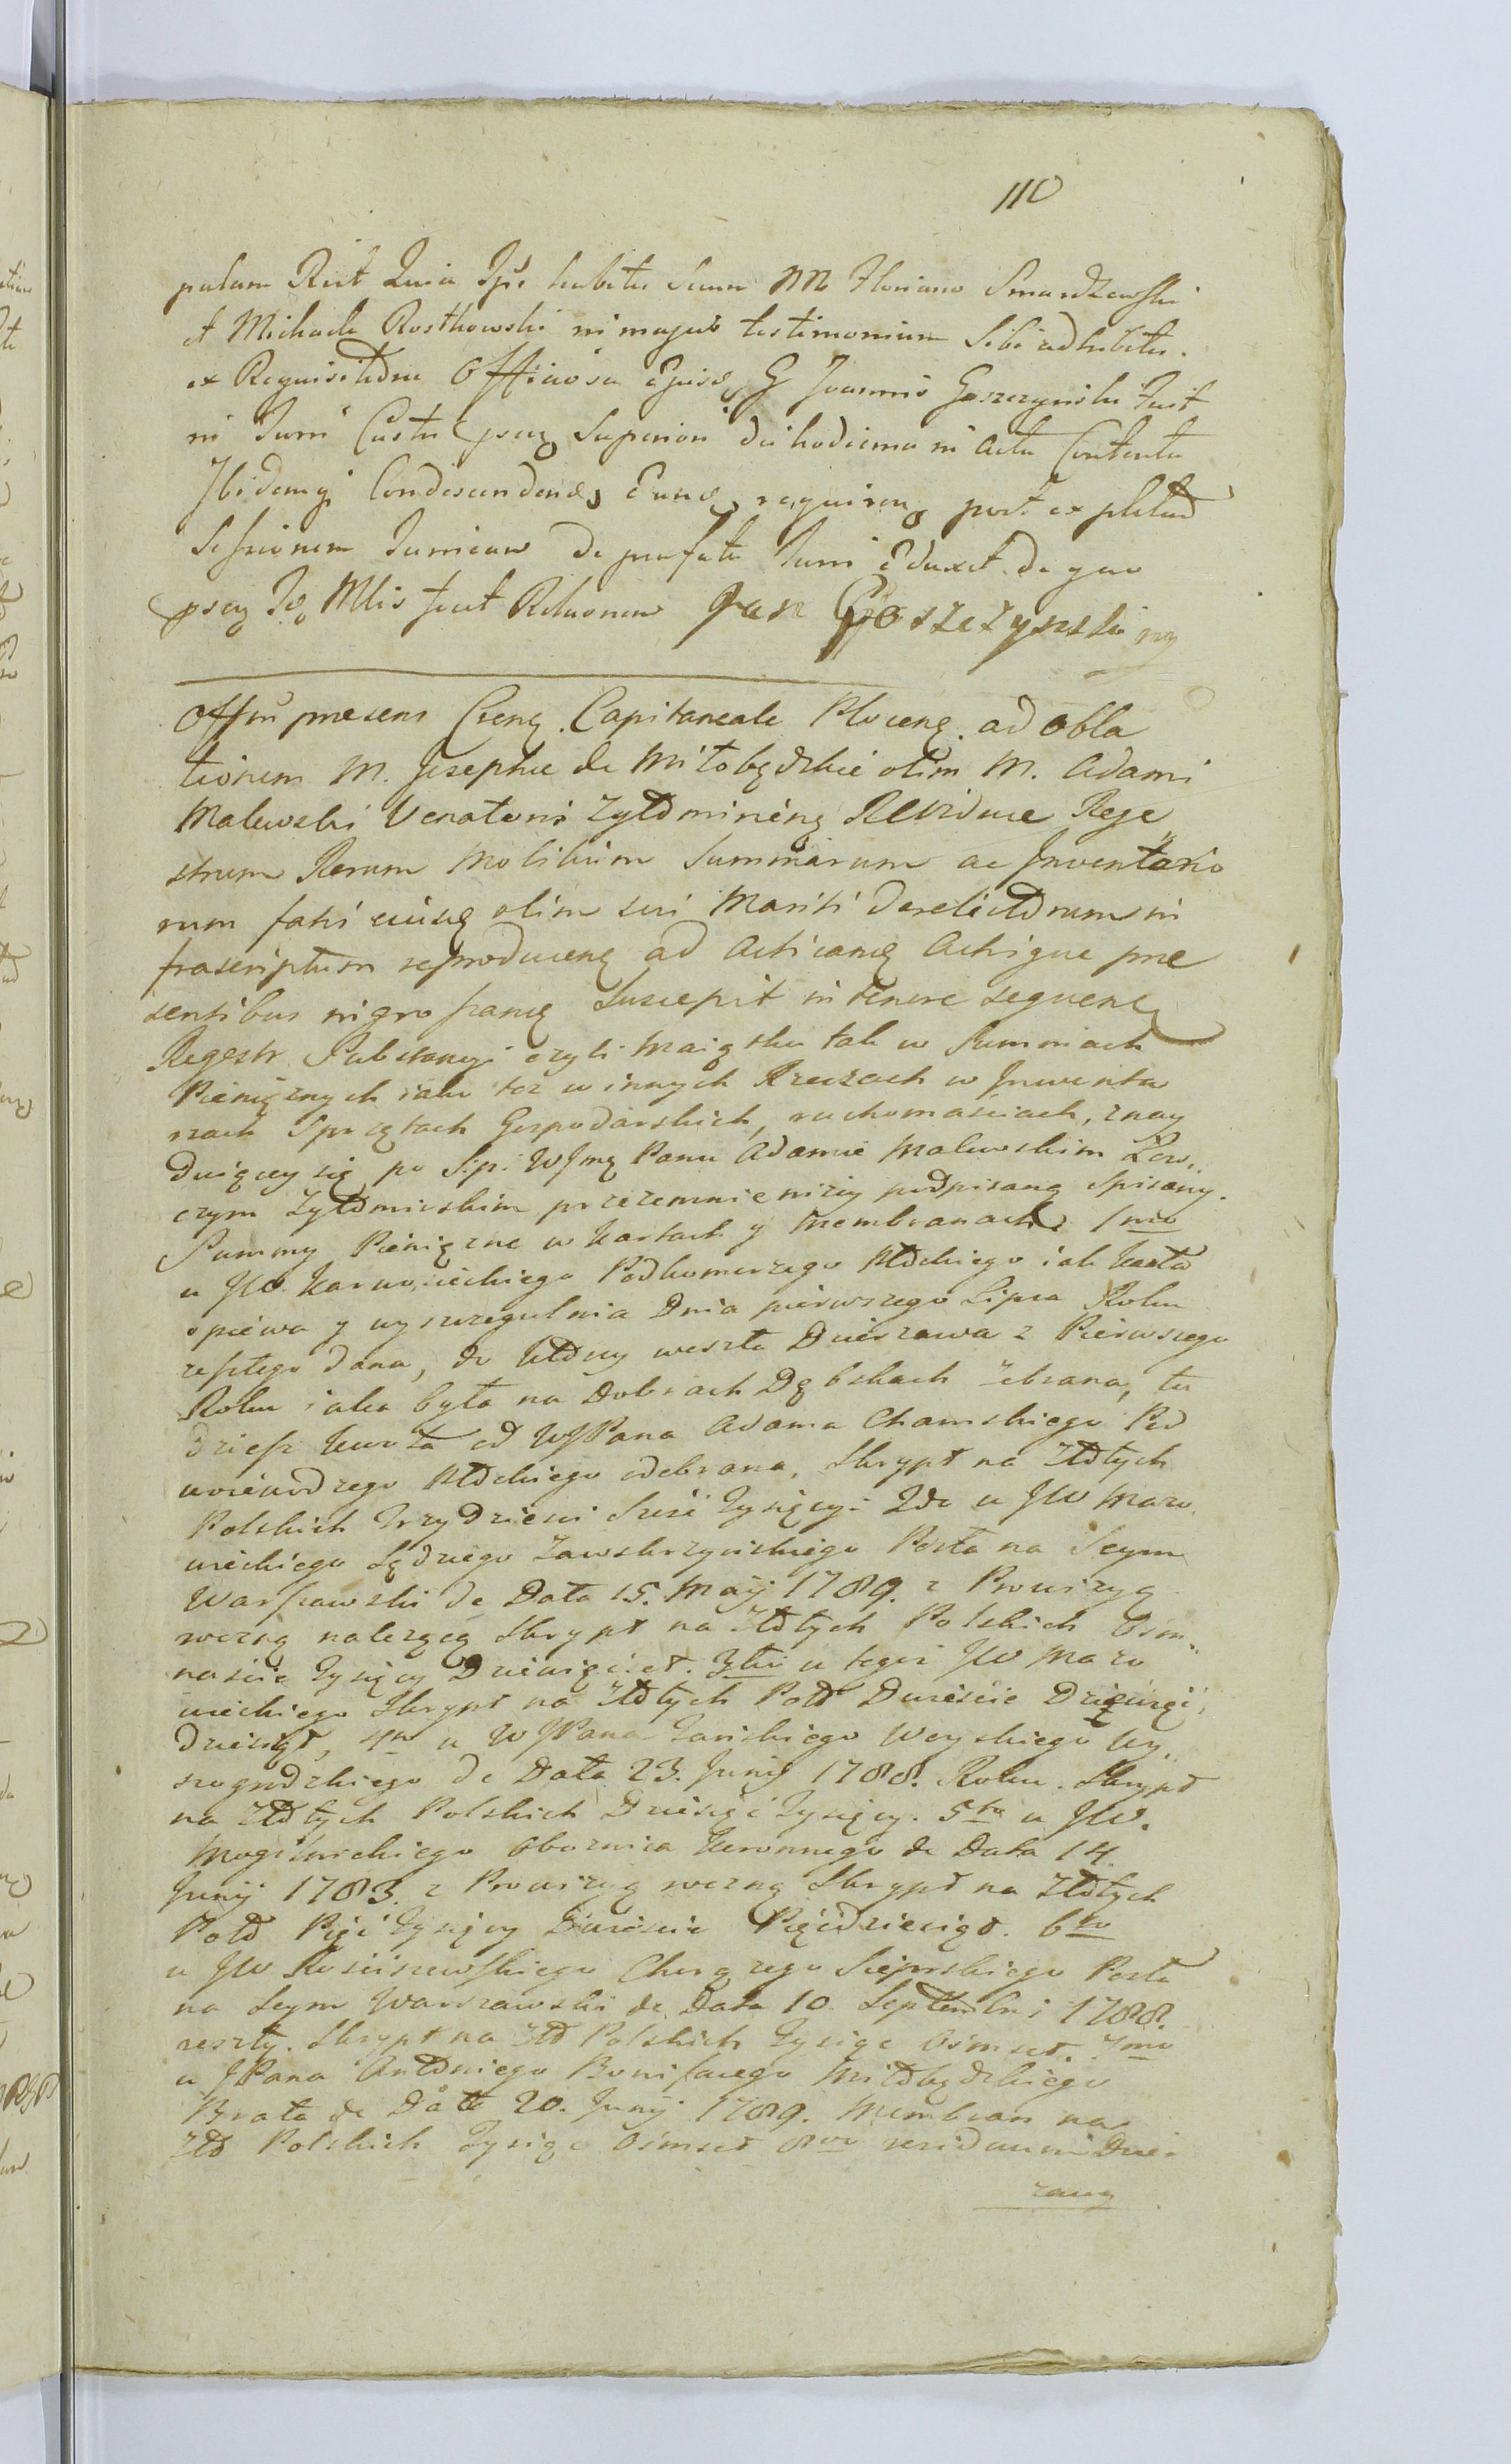 110
palam Quia Ipse habitis Secum MM Floriano Smardzewski
et Michaele Rostkowski in majus testimonium Sibi adhibitis.
ex Requisitione Officiosa G Joannis Goszczynski fuit
in Turri Castri Superiori die hodierna in Actu Contenta
Ibidemq Condescendens requiren post expletam
Sessionem Turrium de praefata Turri eduxit. de quo
Mlis fecit Relationem Jan Goszczynski mp
Offm praesens Crens. Capitaneale Plocens. ad obla
tionem M. Josephae de Miłobędzkie olim M. Adami
Malewski Venatoris Zytominiens Relictae Viduae Rege
strum Rerum Mobilium Summarum ac Inventario
rum fatis olim sui Mariti derelictorum in
frascriptum reproducens ad Acticand Actique prae
sentibus ingrossand Suscepit in tenore sequend
Regestr Substancyi czyli Maiątku tak w Summach
Pieniężnych iako tez w innych Rzeczach w Inwenta
rzach Sprzętach Gospodarskich, ruchomościach, znay
duiącey się po Sp: WJmę Panu Adamie Malewskim Łow,,
czym Zytomirskim przezemnie niżey podpisaną Spisany.
Summy Pieniężne w Kartach y Membranach. 1mo
u JW. Karwosieckiego Podkomorzego Płockiego iak Karta
opiewa y wyszczegulnia Dnia pierwszego Lipca Roku
zeszłego dana, do ktorey weszła Dzierzawa z Pierwszego
Roku iaka była na Dobrach Dębskach zebrana, tu
dziesz kwota od WJPana Adama Chamskiego Pod
woiewodzego Płockiego odebrana, Skrypt na Złotych
Polskich Trzydziesci Szesć Tysięcy: 2do u JW Mazo
wieckiego Sędziego Zawskrzyńskiego Posła na Seym
Warszawski de Data 15. Maij 1789. z Prowizyą
roczną nalezącą Skrypt na Złotych Polskich Osm,,
naście Tysięcy Dziewięćset. 3tio u tegoż JW Mazo
wieckiego Skrypt na Złotych Pols Dwieście Dziewięć,
dziesiąt, 4to u WJPana Woyskiego Wy,
szogrodzkiego de Data 23. Junij 1788. Roku. Skrypt
na Złotych Polskich Dziesięć Tysięcy. 5to u JW.
Mogilnickiego Oboznica Koronnego de Data 14.
Junij 1783. z Prowizyą roczną Skrypt na Złotych
Pols Pięć Tysięcy Dwieście Pięćdziesiąt. 6to
u JW Kosciszewskiego Chorązego Sierpskiego Posła
na Seym Warszawski de Data 10. Septembris 1788.
reszty. Skrypt na Zło Polskich Tysiąc Osmset. 7mo
u JPana Antoniego Bonifacego Miłobędzkiego
Brata de Data 20. Junij 1789. Membran na
Zło Polskich Tysiąc Osmset 8vo residuum Dzier
zawy